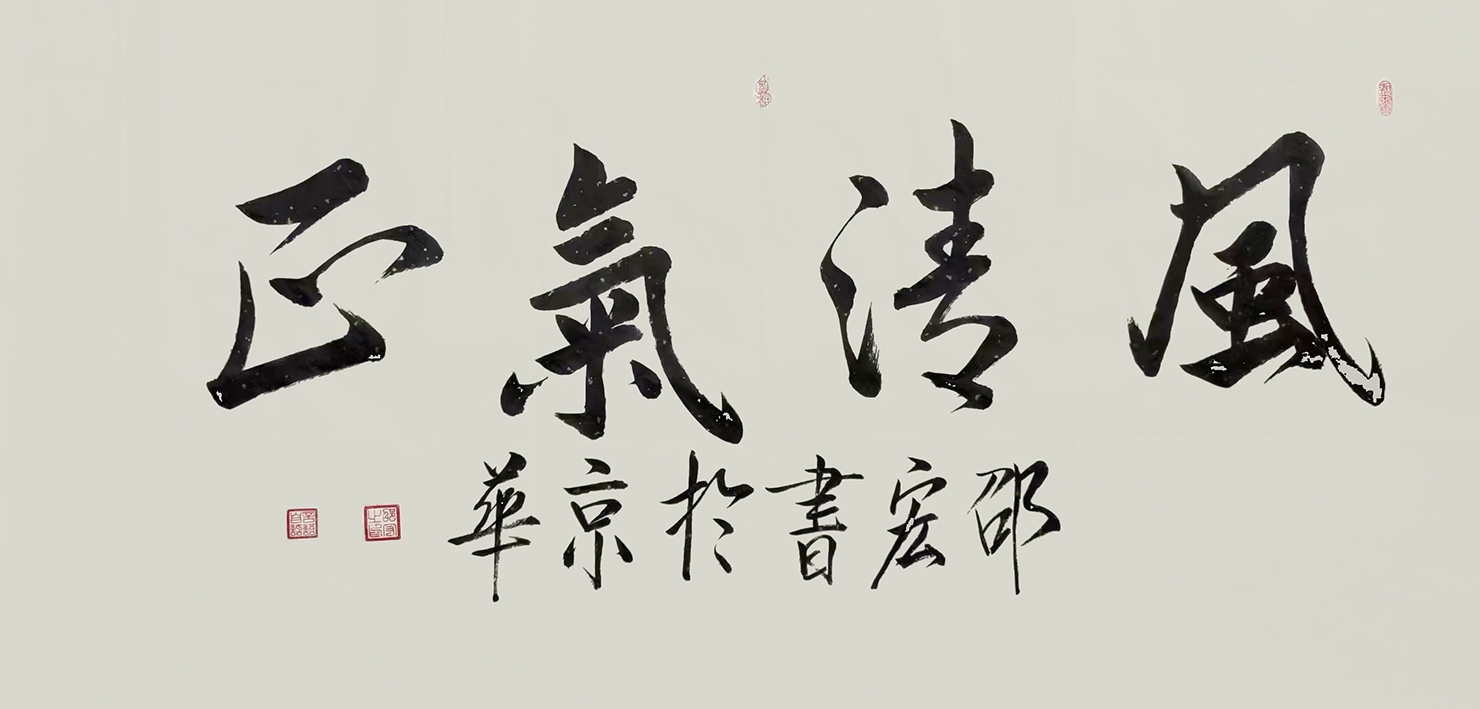 風清氣正
邵宏書於京華